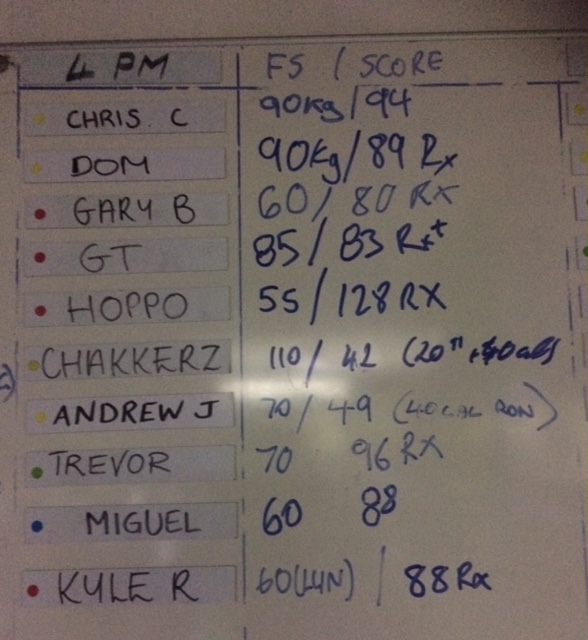 4 PM FS / SCORE
CHRIS. C 90Kg/94
DOM 90Kg/89 Rx
GARY B 60/ 80 RX
GT 85/ 83 Rx+
HOPPO 55/128 RX
CHAKKERZ 110/ 42 (20"
ANDREW J 70/ 49 (40CAL ROW)
TREVOR 70 96 RX
MIGUEL 60 88
KYLE R 60 / 88 Rx